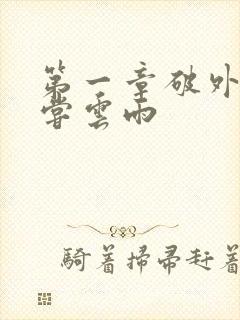 第一章破外
嘗雲雨
騎着掃帚赶着